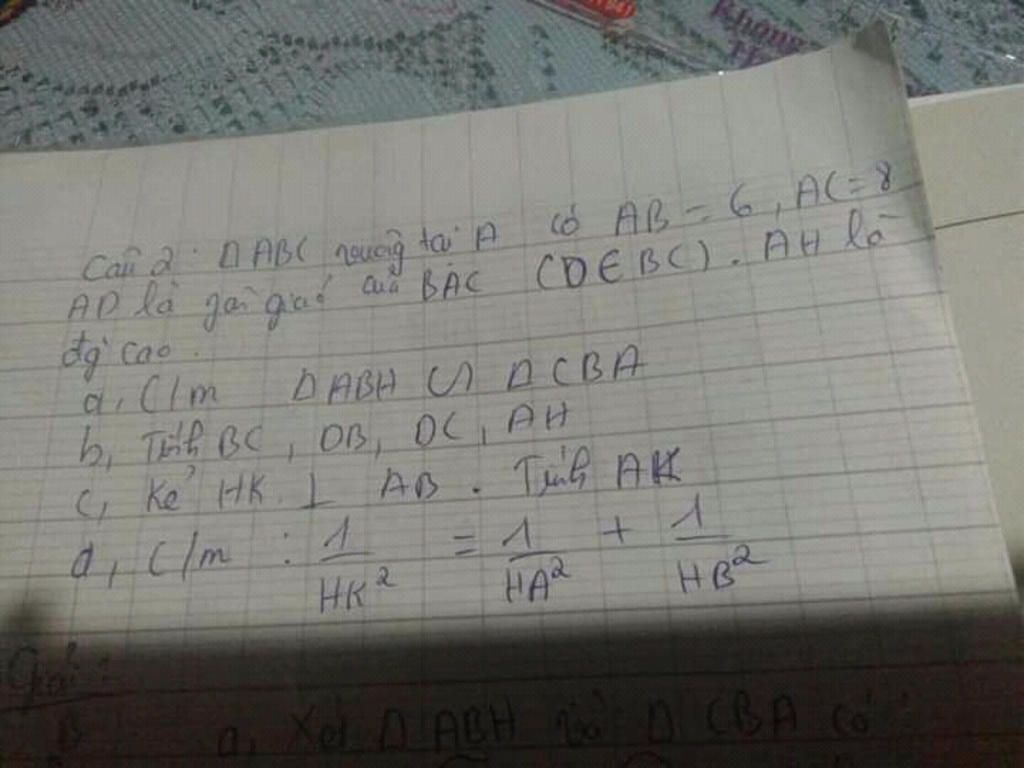 Câu 2: Δ ABC vuông tại A có AB = 6, AC = 8
AD là gân giác của BAC (D ∈ BC). AH là
đg cao.
a, C/m Δ ABH ∽ Δ CBA
b, Tính BC, DB, DC, AH
c, Kẻ HK ⊥ AB. Tính AK
d, C/m : 1/HK² = 1/HA² + 1/HB²
Giải:
B a, Xét Δ ABH và Δ CBA có